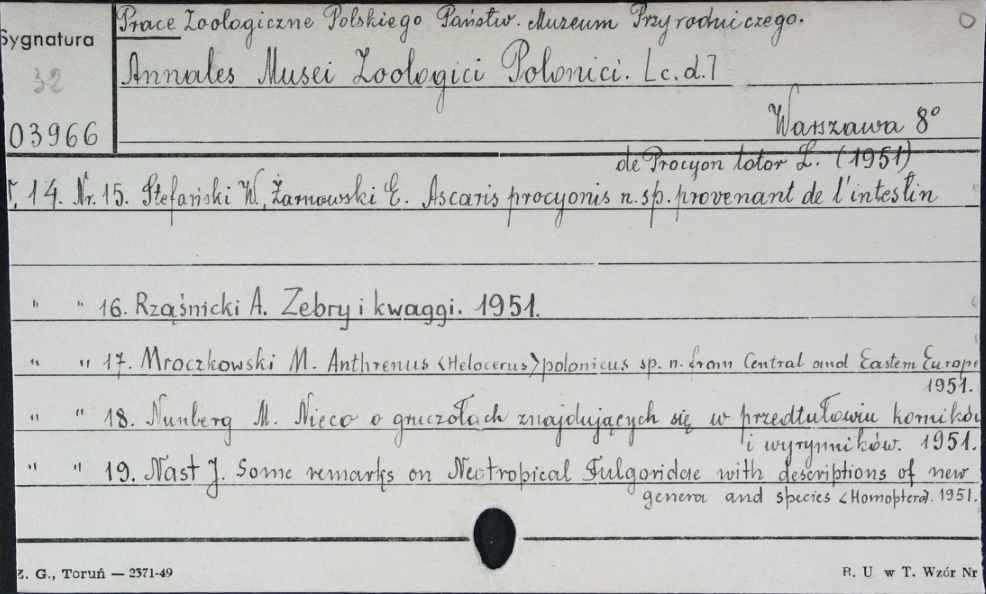 Prace Zoologiczne Polskiego Państw. Muzeum Przyrodniczego.
Sygnatura
32
Annales Musei Zoologici Polonici. [c.d.]
03966
Warszawa 8°
de Procyon lotor L. (1951)
T. 14. Nr. 15. Stefański W., Żarnowski E. Ascaris procyonis n. sp. provenant de l'intestin
" " 16. Rząśnicki A. Zebry i kwaggi. 1951.
" " 17. Mroczkowski M. Anthrenus <Helocerus> polonicus sp. n. from Central and Eastern Europe
1951.
" " 18. Nunberg M. Nieco o gruczołach znajdujących się w przedtułowiu korników
i wyrynników. 1951.
" " 19. Nast J. Some remarks on Neotropical Fulgoridae with descriptions of new
genera and species <Homoptera>. 1951.
Z. G., Toruń — 2371-49
B. U. w T. Wzór Nr